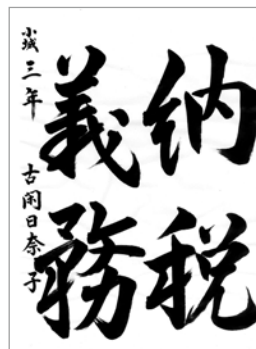 納税
義務
小城三年 古閑日奈子